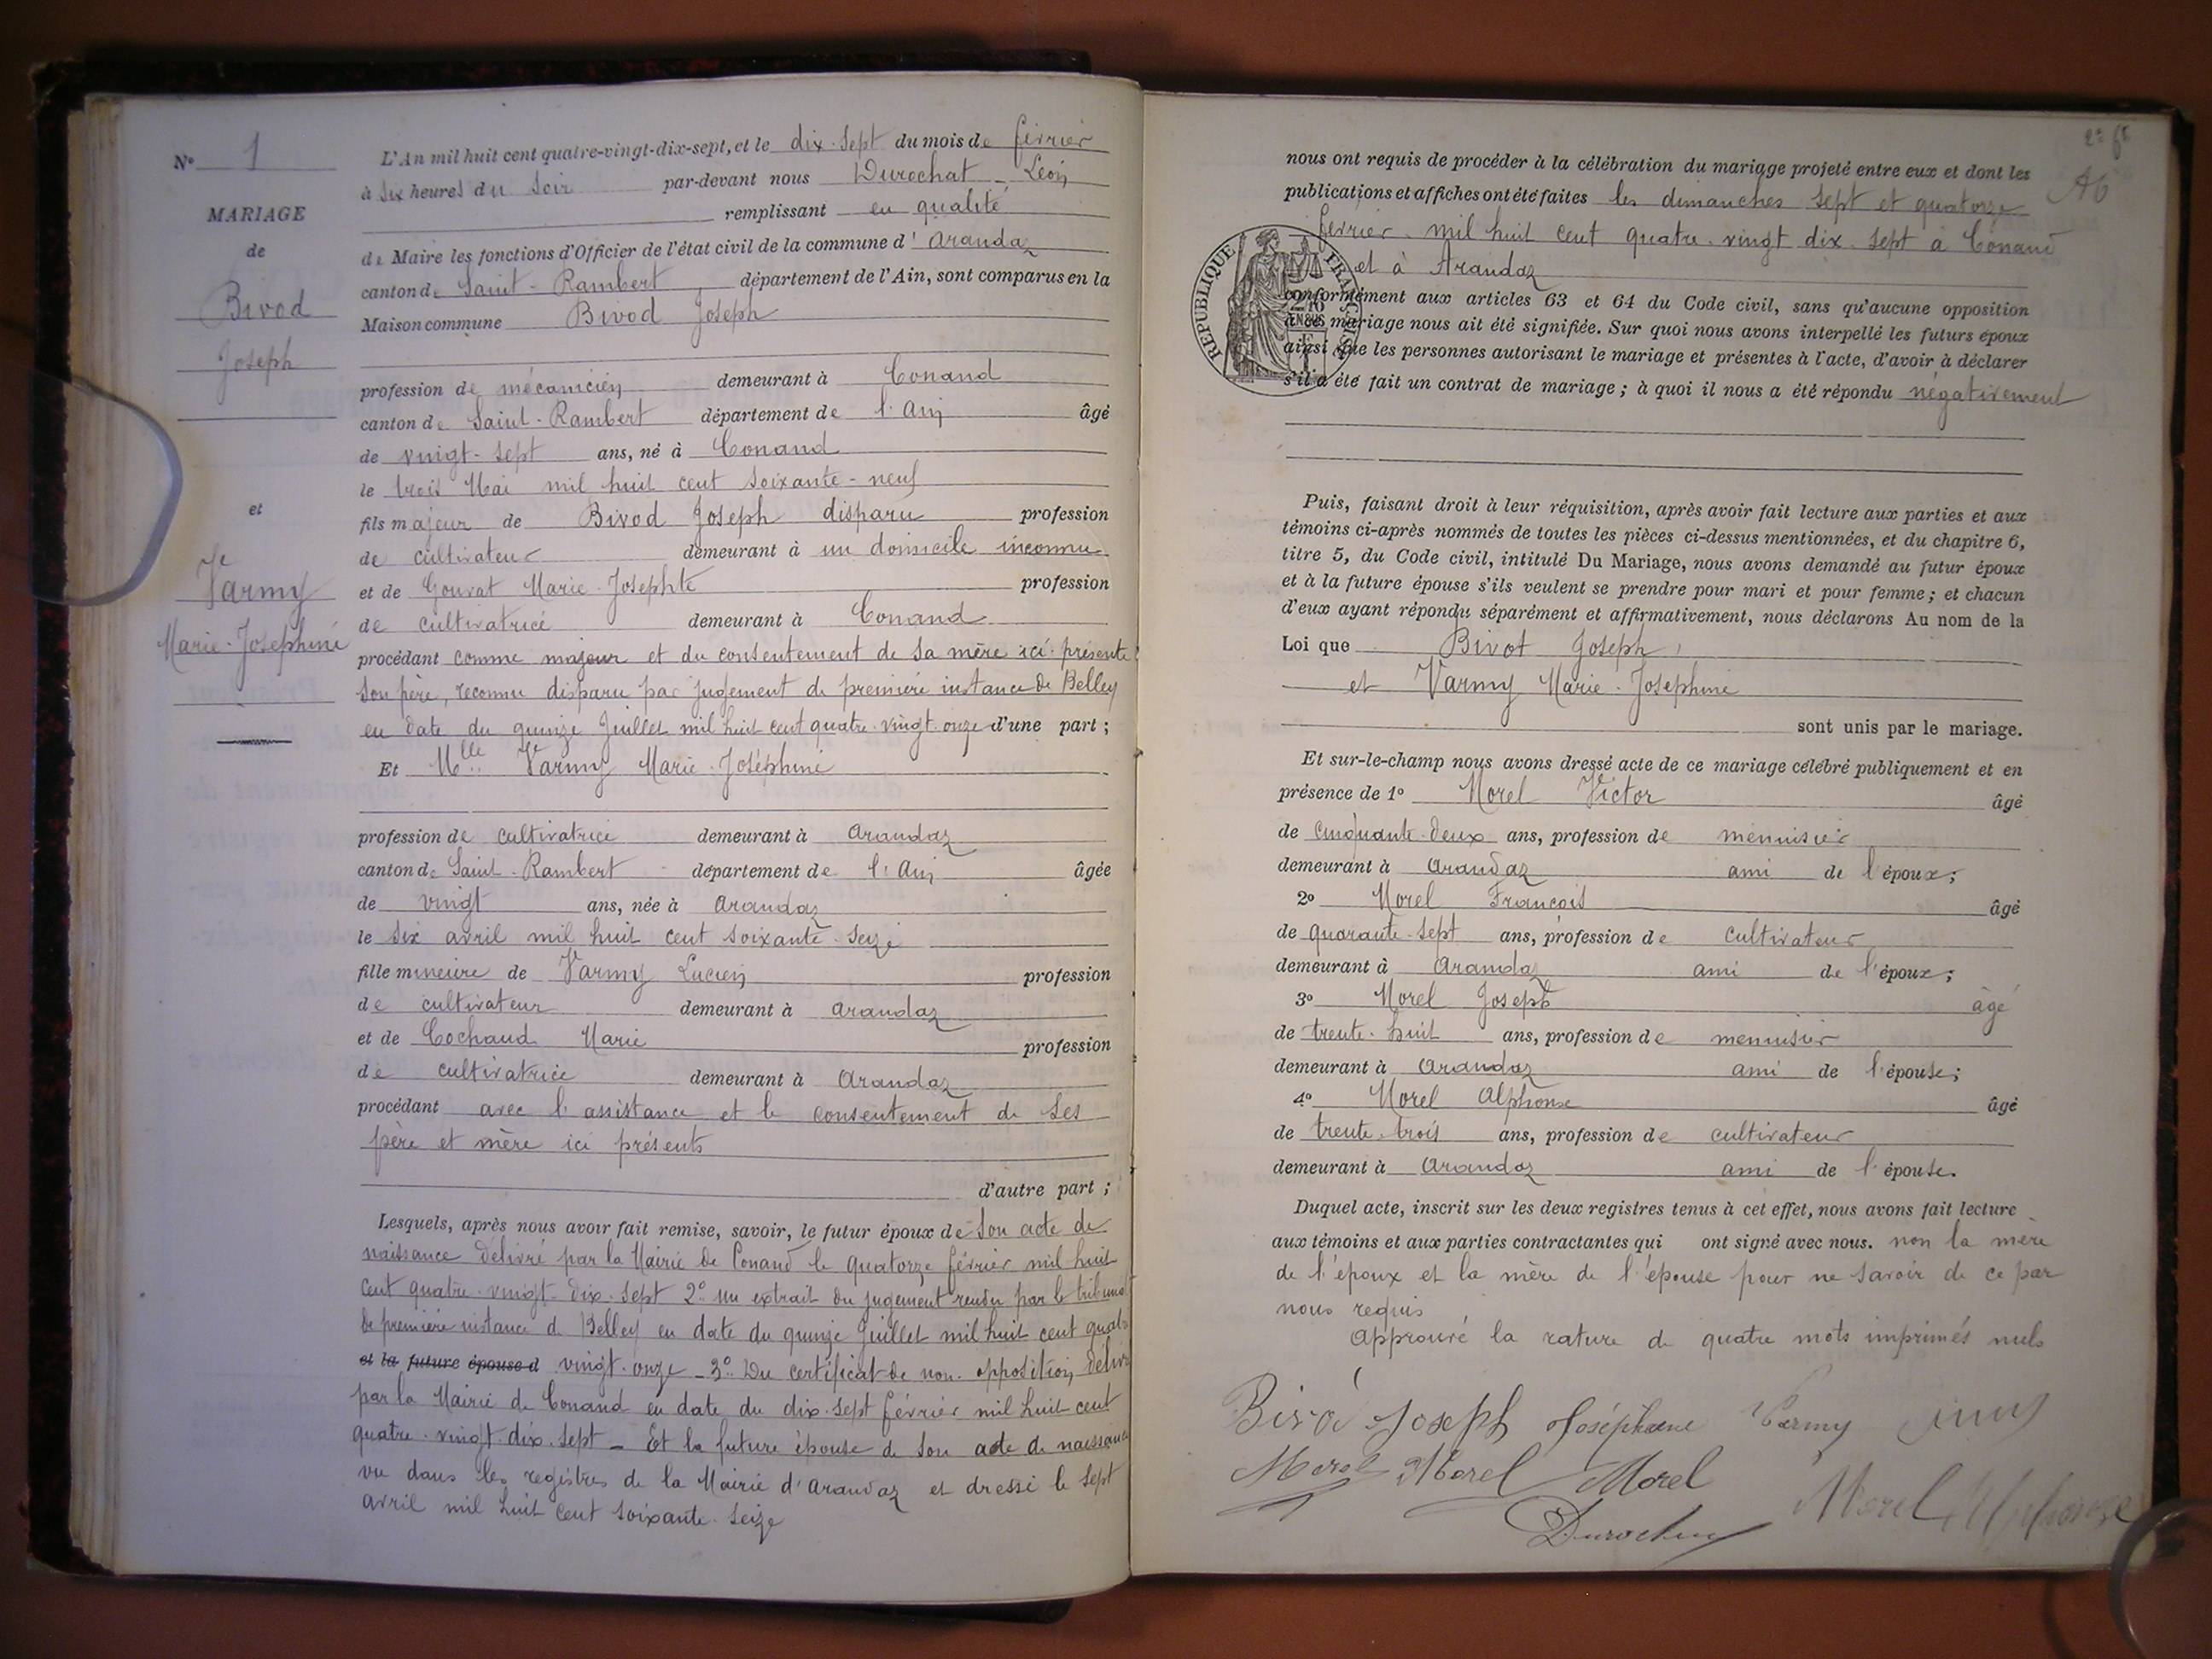 N° 1
MARIAGE
de
Bivod
Joseph
et
Varmy
Marie-Joséphine
L'An mil huit cent quatre-vingt-dix-sept, et le dix-sept du mois de février
à six heures du soir par-devant nous Durochat Léon
remplissant en qualité
de Maire les fonctions d'Officier de l'état civil de la commune d'Arandaz
canton de Saint-Rambert département de l'Ain, sont comparus en la
Maison commune Bivod Joseph
profession de mécanicien demeurant à Conand
canton de Saint-Rambert département de l'Ain âgé
de vingt-sept ans, né à Conand
le trois Mai mil huit cent soixante-neuf
fils majeur de Bivod Joseph disparu profession
de cultivateur demeurant à un domicile inconnu
et de Gouvat Marie-Josephte profession
de cultivatrice demeurant à Conand
procédant comme majeur et du consentement de sa mère ici présente
son père, reconnu disparu par jugement de première instance de Belley
en date du quinze Juillet mil huit cent quatre-vingt-onze d'une part ;
Et Mlle Varmy Marie-Joséphine
profession de cultivatrice demeurant à Arandaz
canton de Saint-Rambert département de l'Ain âgée
de vingt ans, née à Arandaz
le six avril mil huit cent soixante-seize
fille mineure de Varmy Lucien profession
de cultivateur demeurant à Arandaz
et de Cochaud Marie profession
de cultivatrice demeurant à Arandaz
procédant avec l'assistance et le consentement de ses
père et mère ici présents
d'autre part ;
Lesquels, après nous avoir fait remise, savoir, le futur époux de son acte de
naissance délivré par la Mairie de Conand le quatorze février mil huit
cent quatre-vingt-dix-sept 2° un extrait du jugement rendu par le tribunal
de première instance d Belley en date du quinze Juillet mil huit cent quatre
et la future épouse d vingt-onze - 3° Du certificat de non-opposition délivré
par la Mairie de Conand en date du dix-sept février mil huit cent
quatre-vingt-dix-sept - Et la future épouse de son acte de naissance
vu dans les registres de la Mairie d'Arandaz et dressé le sept
avril mil huit cent soixante-seize
nous ont requis de procéder à la célébration du mariage projeté entre eux et dont les
publications et affiches ont été faites les dimanches sept et quatorze
février mil huit cent quatre-vingt dix-sept à Conand
et à Arandaz
RÉPUBLIQUE FRANÇAISE
conformément aux articles 63 et 64 du Code civil, sans qu'aucune opposition
à ce mariage nous ait été signifiée. Sur quoi nous avons interpellé les futurs époux
ainsi que les personnes autorisant le mariage et présentes à l'acte, d'avoir à déclarer
s'il a été fait un contrat de mariage ; à quoi il nous a été répondu négativement
Puis, faisant droit à leur réquisition, après avoir fait lecture aux parties et aux
témoins ci-après nommés de toutes les pièces ci-dessus mentionnées, et du chapitre 6,
titre 5, du Code civil, intitulé Du Mariage, nous avons demandé au futur époux
et à la future épouse s'ils veulent se prendre pour mari et pour femme ; et chacun
d'eux ayant répondu séparément et affirmativement, nous déclarons Au nom de la
Loi que Bivot Joseph
et Varmy Marie-Joséphine
sont unis par le mariage.
Et sur-le-champ nous avons dressé acte de ce mariage célébré publiquement et en
présence de 1° Morel Victor âgé
de cinquante-deux ans, profession de menuisier
demeurant à Arandaz ami de l'époux ;
2° Morel François âgé
de quarante-sept ans, profession de cultivateur
demeurant à Arandaz ami de l'époux ;
3° Morel Joseph âgé
de trente-huit ans, profession de menuisier
demeurant à Arandaz ami de l'épouse ;
4° Morel Alphonse âgé
de trente-trois ans, profession de cultivateur
demeurant à Arandaz ami de l'épouse.
Duquel acte, inscrit sur les deux registres tenus à cet effet, nous avons fait lecture
aux témoins et aux parties contractantes qui ont signé avec nous. non la mère
de l'époux et la mère de l'épouse pour ne savoir de ce par
nous requis
Approuvé la rature de quatre mots imprimés nuls
Bivod Joseph Joséphine Varmy
Morel Morel Morel
Morel Alphonse
Durochat